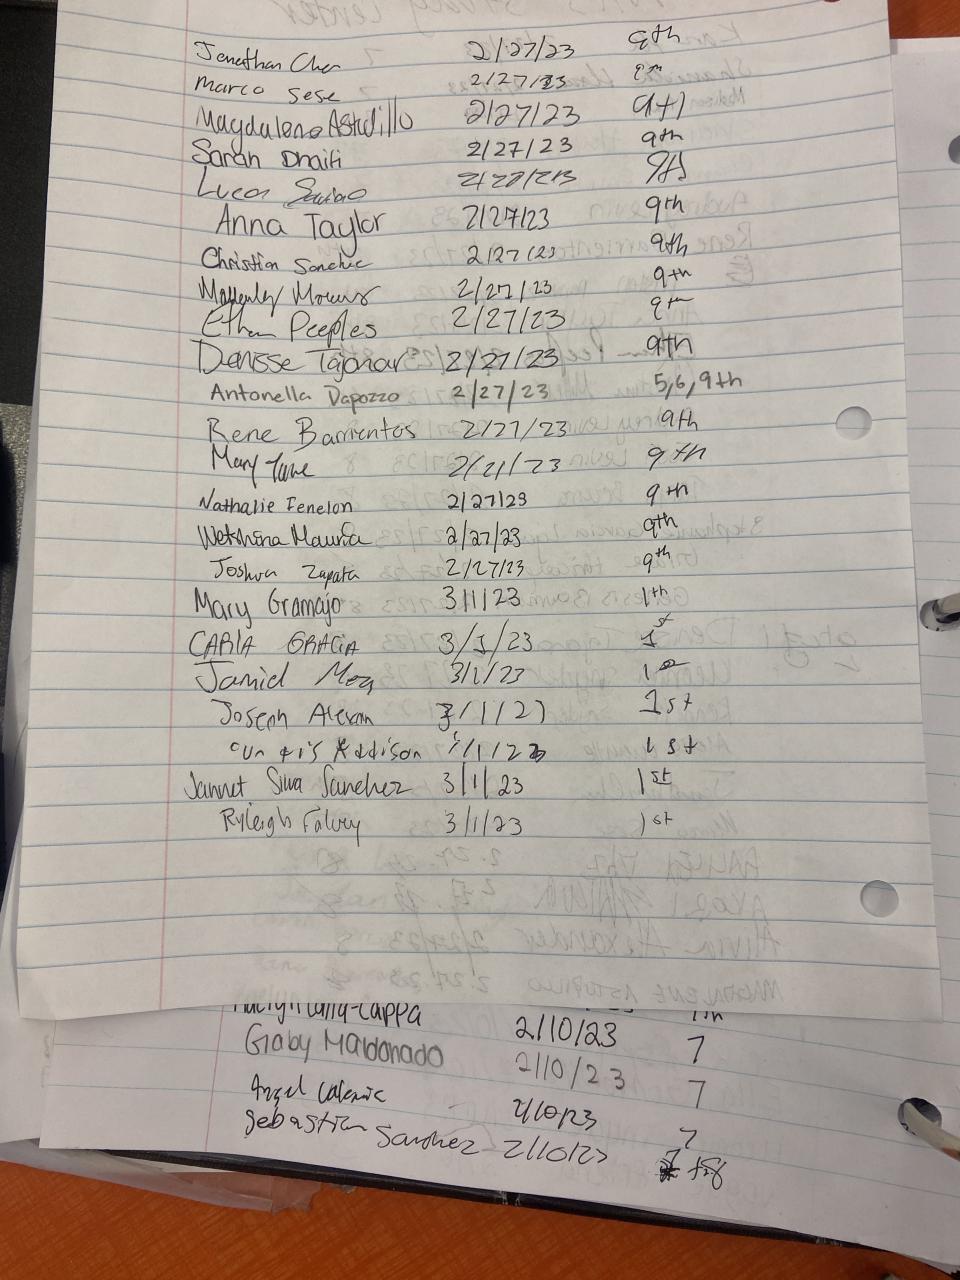 Jonathan Cher 2/27/23 9th
Marco Sese 2/27/23 9th
Magdalena Astudillo 2/27/23 9th
Sarah Dhaiti 2/27/23 9th
Luca 9th
Anna Taylor 2/27/23 9th
Christian Sanchez 2/27/23 9th
2/27/23 9th
Ethan Peeples 2/27/23 9th
Denisse Tajonar 2/27/23 9th
Antonella Dapozzo 2/27/23 5,6,9th
Rene Barrientos 2/27/23 9th
Mary Jane 2/21/23 9th
Nathalie Fenelon 2/27/23 9th
2/27/23 9th
Joshua Zapata 2/27/23 9th
Mary Gramajo 3/1/23 1th
CARLA GRACIA 3/1/23 1st
Jamid 3/1/23 1st
Joseph 3/1/23 1st
Addison 1st
Jannet Silva Sanchez 3/1/23 1st
Ryleigh Falvey 3/1/23 1st
Cappa 2/10/23 7
Gaby Maldonado 2/10/23 7
Angel 2/10/23 7
Sebastian Sanchez 2/10/23 +8